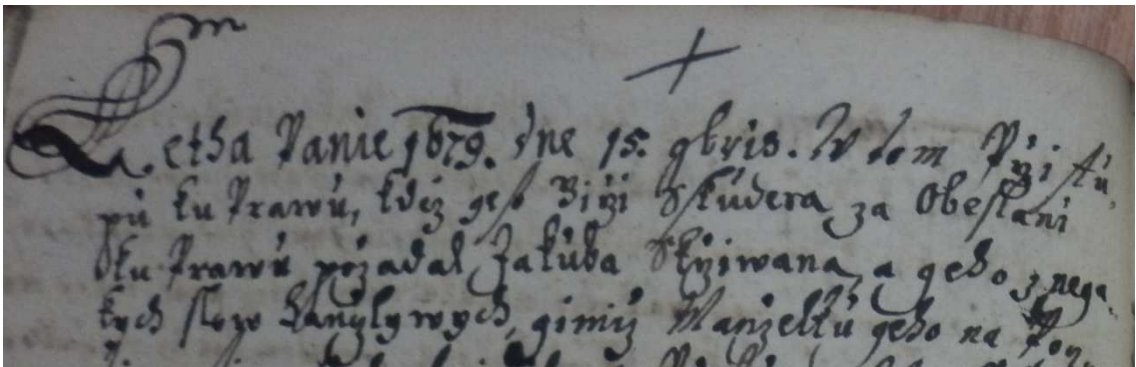 Letha Panie 1679. dne 15. 9bris. W tom Pržistú,
pú ku Prawú, kdiž gest Giržj Skúdera za Obeslani
Sku Prawú požadal Jakúba Skřiwana, a geho z nega,
kych slow hanžlywych, gimiž Manželkú geho na